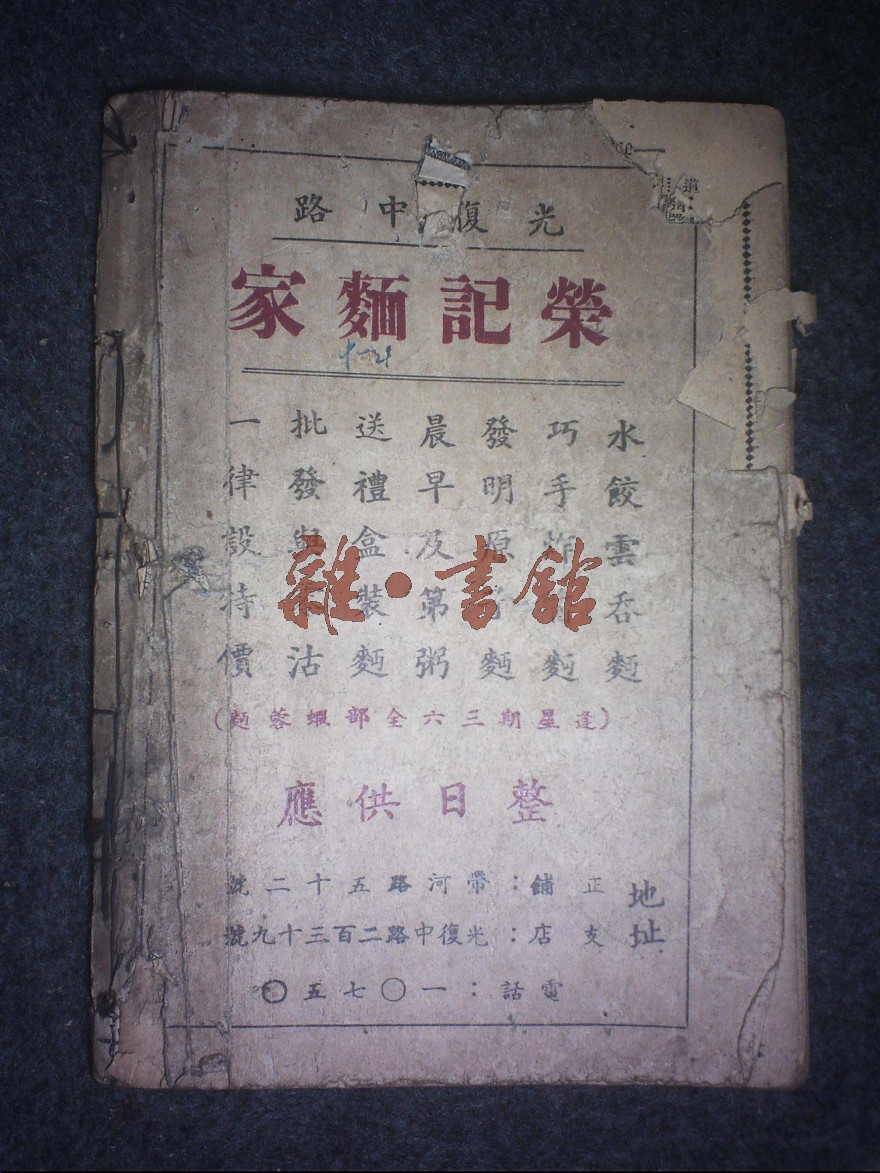 光復中路
榮記麵家
水餃雲吞麵
巧手炸麵
發明原麵
晨早及第粥
送禮盒裝麵
批發與沽
一律設特價
(逢星期三六全部蝦蓉麵)
整日供應
地址
正舖:帶河路五十二號
支店:光復中路二百三十九號
電話:一〇七五〇
雜·書館